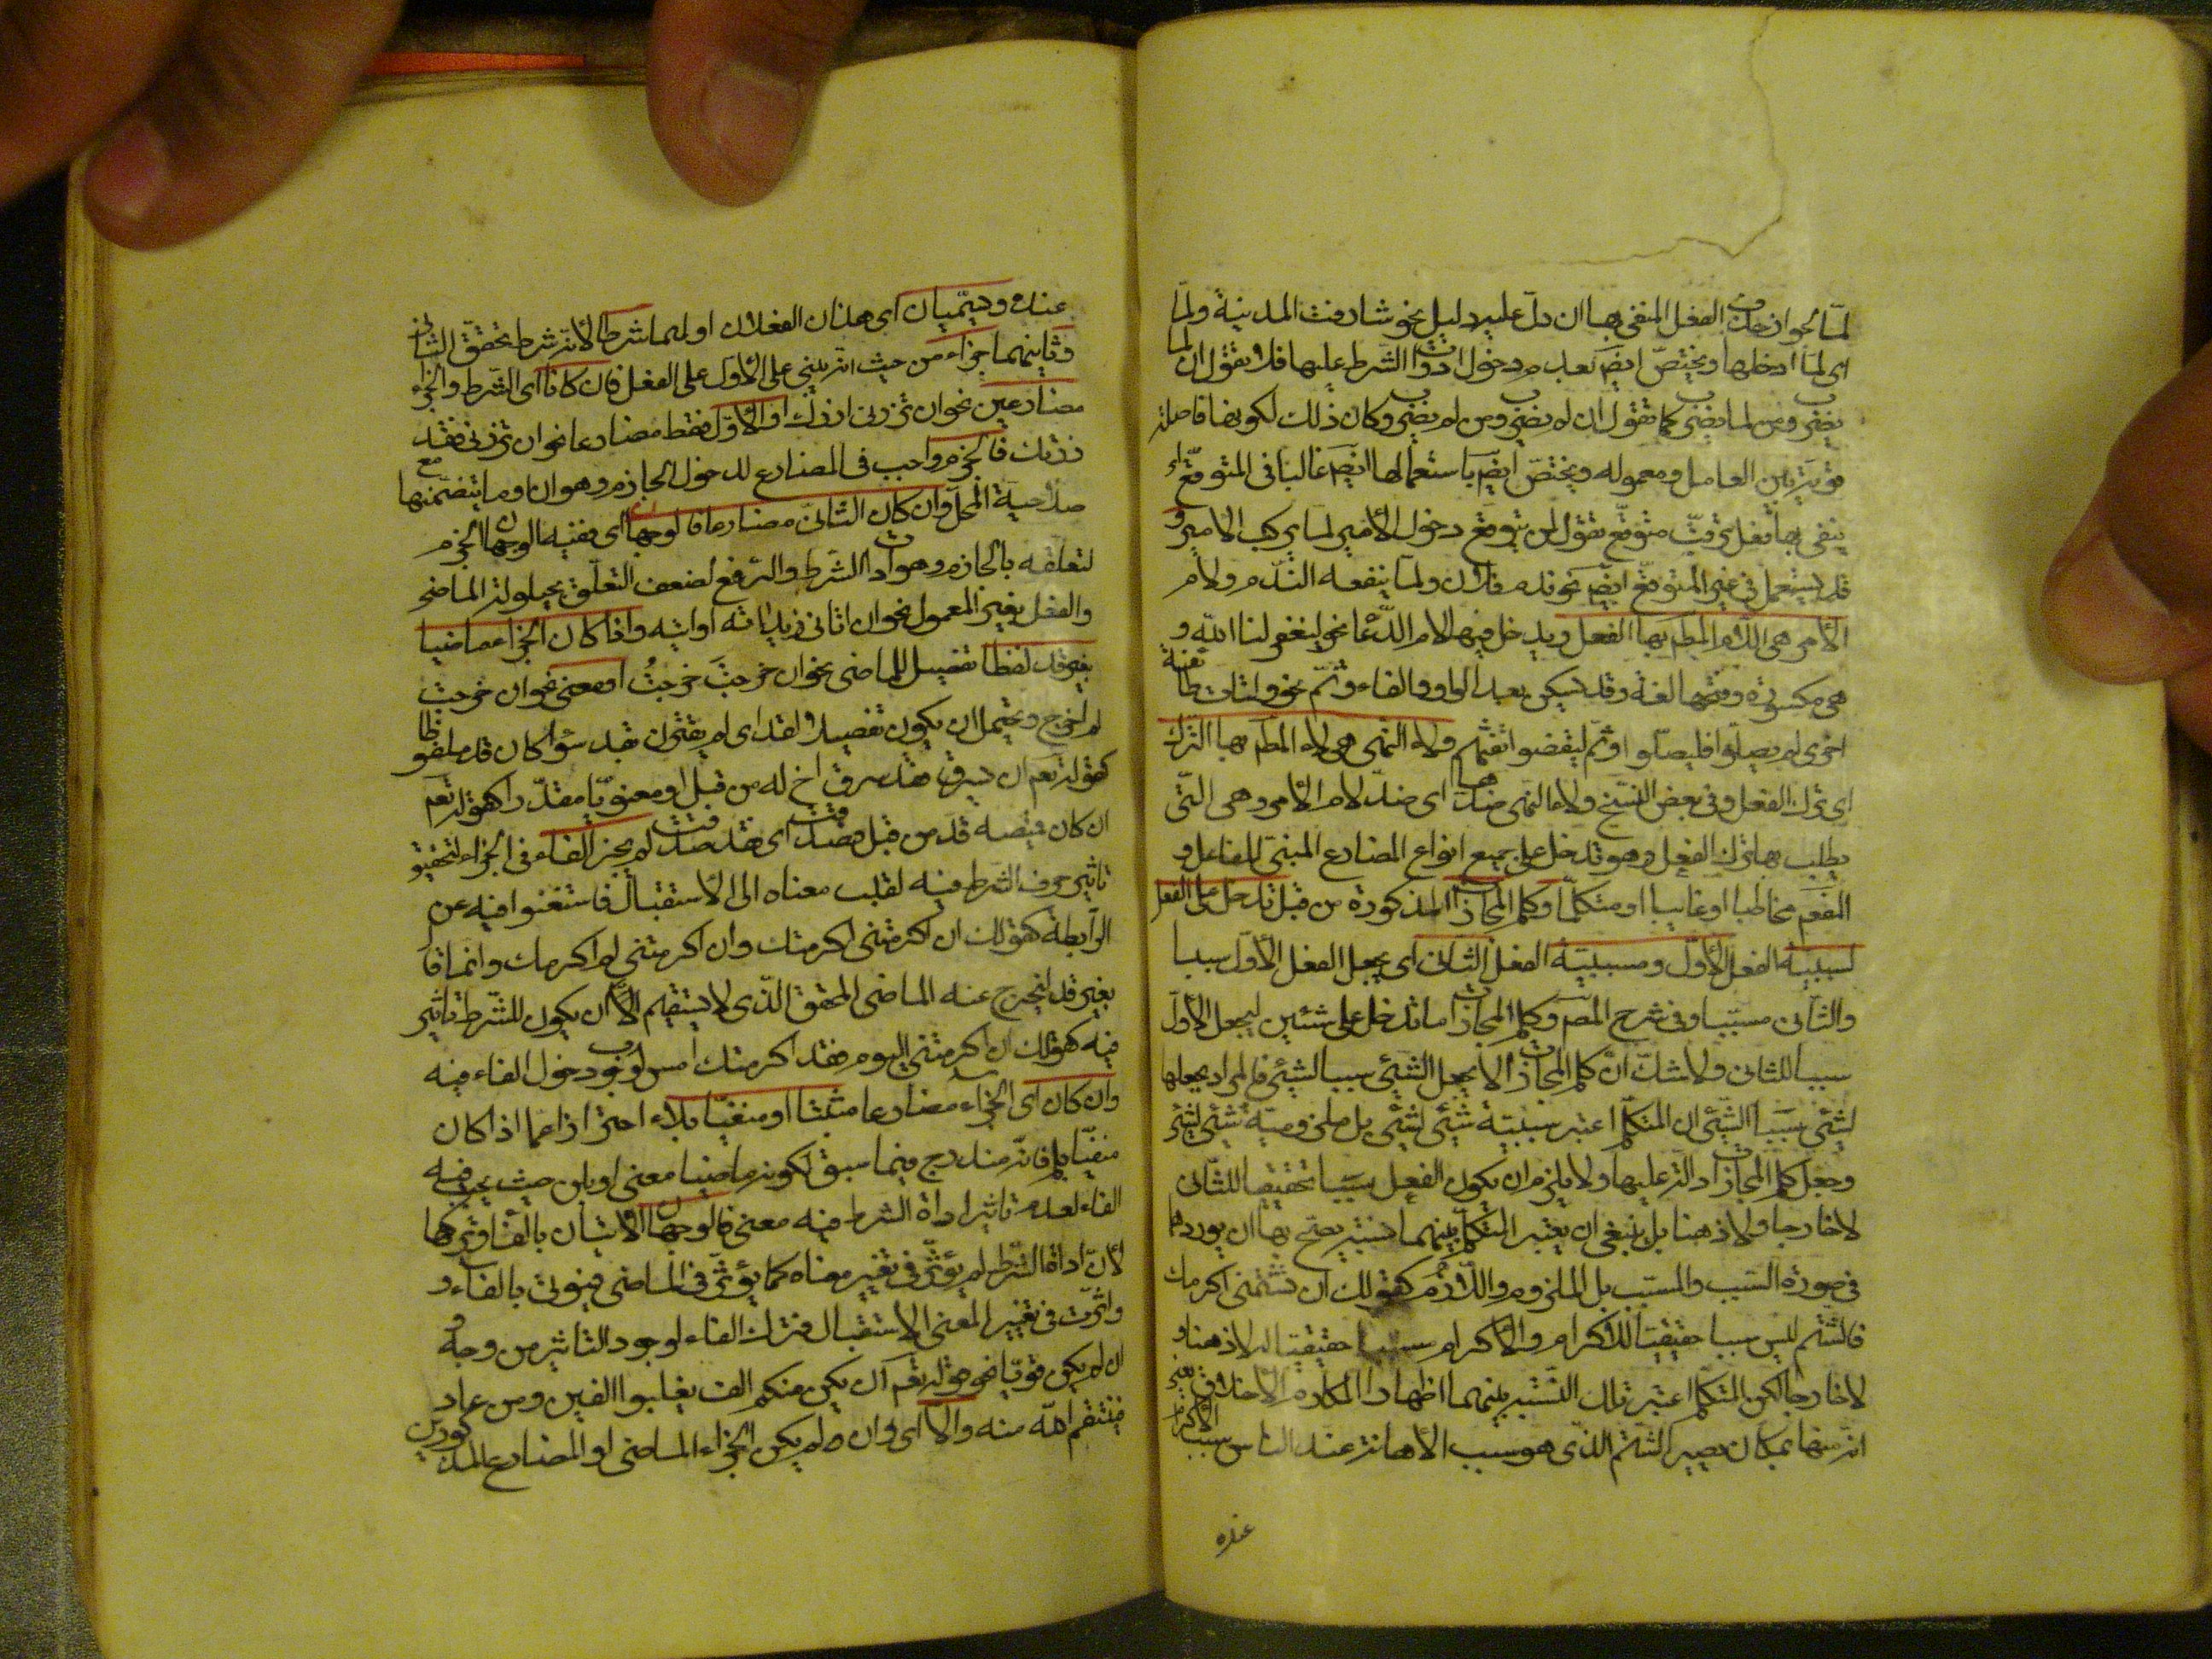 لمّا بجواز حذف الفعل المنفى بها ان دلّ عليه دليل نحو شارفت المدينة ولمّا
اى لمّا ادخلها ويختصّ ايضَ بعدم دخول ادوات الشرط عليها فلا تقول ان لما
يضرب ومن لما يضرب كما تقول ان لم يضرب ومن لم يضرب وكان ذلك لكونها فاصلة
قوية بين العامل ومعموله ويختصّ ايضَ باستعمالها ايضَ غالبا فى المتوقّع اى
ينفى بها فعل مترقّب متوقّع تقول لمن يتوقع دخول الأمير لما يركب الامير و
قد يستعمل فى غير المتوقّع ايضَ نحو ندم فلان ولمّا ينفعه الندم ولام
الأمر هى اللام المطم بها الفعل ويدخل فيها لام الدّعا نحو ليغفر لنا الله و
هى مكسورة وفتحها لغة وقد يسكن بعد الواو والفاء وثمّ نحو ولتات طائفة
اخرى لم يصلّوا فليصلّوا وثم ليقضوا تفثهم ولاء النهى هى لاء المطم بها الترك
اى ترك الفعل وفى بعض النسخ ولاء النهى ضدها اى ضدّ لام الأمر وهى التّى
يطلب بها ترك الفعل وهو تدخل على جميع انواع المضارع المبنىّ للفاعل و
المفعَ مخاطبا او غايبا او متكلّما وكلم المجازات المذكورة من قبل تدخل على الفعل
لسببية الفعل الأوّل ومسببيّة الفعل الثانى اى يجعل الفعل الأوّل سببا
والثانى مسبّبا وفى شرح المصَ وكلم المجازات ما تدخل على شئين ليجعل الأوّل
سببا للثانى ولا شكّ انّ كلم المجازات لا يجعل الشئ سببا لشئ فالمراد بجعلها
لشئ سببا الشّئ ان المتكلّم اعتبر سببيّة شئ لشئ بل ملزوميّة شئ لشئ
وجعل كلم المجازات دالّة عليها ولا يلزم ان يكون الفعل سببا حقيقيا للثّانى
لا خارجا ولا ذهنا بل ينبغى ان يعتبر المتكلّم بينهما نسبة يصحّ بها ان يوردهما
فى صورة السبب والمسبّب بل الملزوم واللّازم كقولك ان تشتمنى اكرمك
فالشّتم ليس سببا حقيقيّا للاكرام والأكرام مسببا حقيقيا له لا ذهنا و
لا خارجا لكن المتكلّم اعتبر تلك النّسبة بينهما اظهارا لمكارم الأخلاق يعنى
انّه منها بمكان يصير الشتم الذّى هو سبب الأهانة عند الناس سبب الأكرام
عنده
عنده ويسمّيان اى هذان الفعلان اولهما شرطا لأنّه شرط لتحقّق الثانى
وثانيهما جزاء من حيث انّه يبتنى على الأوّل على الفعل فان كانا اى الشّرط والجزاء
مضارعين نحو ان تزرنى ازرك او الأوّل فقط مضارعا نحو ان تزرنى فقد
زرتك فالجزم واجب فى المضارع لدخول الجازم وهو ان وما يتضمّنها مع
صلاحية المحلّ وان كان الثانى مضارعا فالوجهان اى ففيه الوجهان الجزم
لتعلّقه بالجازم وهو ادات الشّرط والرّفع لضعف التعلّق بحيلولة الماضى
والفصل بغير المعمول نحو ان اتانى زيد اته او اتيه واذا كان الجزاء ماضيا
بغير قد لفظا تفصيل للماضى نحو ان خرجتَ خرجتُ او معنى نحو ان خرجت
لم اخرج ويحتمل ان يكون تفصيلا لقد اى لم يقترن بقد سواء كان قد ملفوظا
كقوله تعَم ان يسرق فقد سرق اخ له من قبل او معنويّا مقدّرا كقوله تعَم
ان كان قميصه قدّ من قبل فصدقت اى فقد صدقت لم يجز الفاء فى الجزاء لتحقيق
تاثير حرف الشّرط فيه لقلب معناه الى الأستقبال فاستغنوا فيه عن
الرّابطة كقولك ان اكرمتنى اكرمتك وان اكرمتنى لم اكرمك وانما قال
بغير قد ليخرج عنه الماضى المحقق الذّى لا يستقيم الّا ان يكون للشّرط تاثير
فيه كقولك ان اكرمتنى اليوم فقد اكرمتك امس لوجوب دخول الفاء فيه
وان كان اى الجزاء مضارعا مثبتا او منفيّا بلاء احترازا عما اذا كان
منفيّا بلم فانّه مندرج فيما سبق لكونه ماضيا معنى او بلن حيث يجب فيه
الفاء لعدم تاثير اداة الشرط فيه معنى فالوجهان الأتيان بالفاء وتركها
لأنّ اداة الشّرط لم يؤثّر فى تغيير معناه كما يؤثّر فى الماضى فيؤتى بالفاء و
واثّرت فى تغيير المعنى الاستقبال فترك الفاء لوجود التاثير من وجه و
ان لم يكن قويّا نحو قوله تعَم ان يكن منكم الف يغلبوا الفين ومن عاد
فينتقم الله منه والّا اى وان لم يكن الجزاء الماضى او المضارع المذكورين